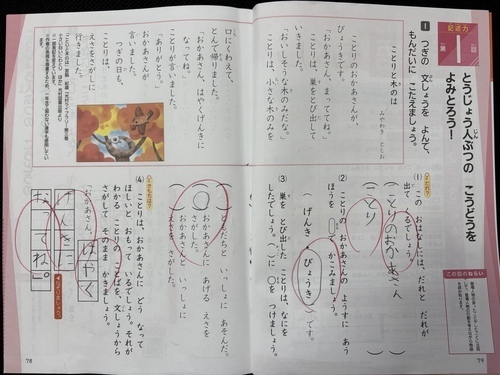 記述力
第1回
とうじょう人ぶつの こうどうを
よみとろう！
1 つぎの 文しょうを よんで、
もんだいに こたえましょう。
ことりと木のは
ことりのおかあさんが、
びょうきです。
「おかあさん、まっててね。」
ことりは、巣をとび出して
いきました。
「おいしそうな木のみだな。」
ことりは、小さな木のみを
口にくわえて、
とんで帰りました。
「おかあさん、はやくげんきに
なってね。」
ことりが言いました。
「ありがとう。」
おかあさんが
言いました。
つぎの日も、
ことりは、
えさをさがしに
行きました。
(1) この おはなしには、だれと だれが
出て くるでしょう。
（ことりのおかあさん）
（ことり）
(2) ことりの おかあさんの ようすに あう
ほうを ◯で かこみましょう。
（げんき・びょうき）です。
(3) 巣を とび出した ことりは、なにを
したでしょう。（ ）に ○を つけましょう。
（ ）ともだちと いっしょに あそんだ。
（○）おかあさんに あげる えさを
さがした。
（ ）おかあさんと いっしょに
えさを さがした。
(4) ことりは、おかあさんに どう なって
ほしいと おもって いるでしょう。それが
わかる ことりの ことばを、文しょうから
さがして そのまま かきましょう。
「おかあさん、はやく
げんきに
なってね。」
この回のねらい
78
79